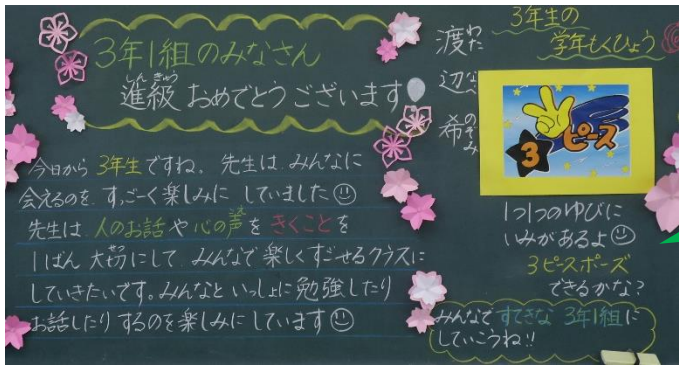 3年1組のみなさん
進級 おめでとうございます
しんきゅう
今日から 3年生ですね。先生は みんなに
会えるのを すっごく楽しみに していました
先生は 人のお話や心の声を きくことを
1ばん 大切にして みんなで 楽しくすごせるクラスに
していきたいです。みんなと いっしょに 勉強したり
お話したり するのを楽しみに しています
渡辺 希
わたなべ のぞみ
3年生の
学年もくひょう
3ピース
1つ1つのゆびに
いみがあるよ
3ピースポーズ
できるかな?
みんなで すてきな 3年1組に
していこうね!!